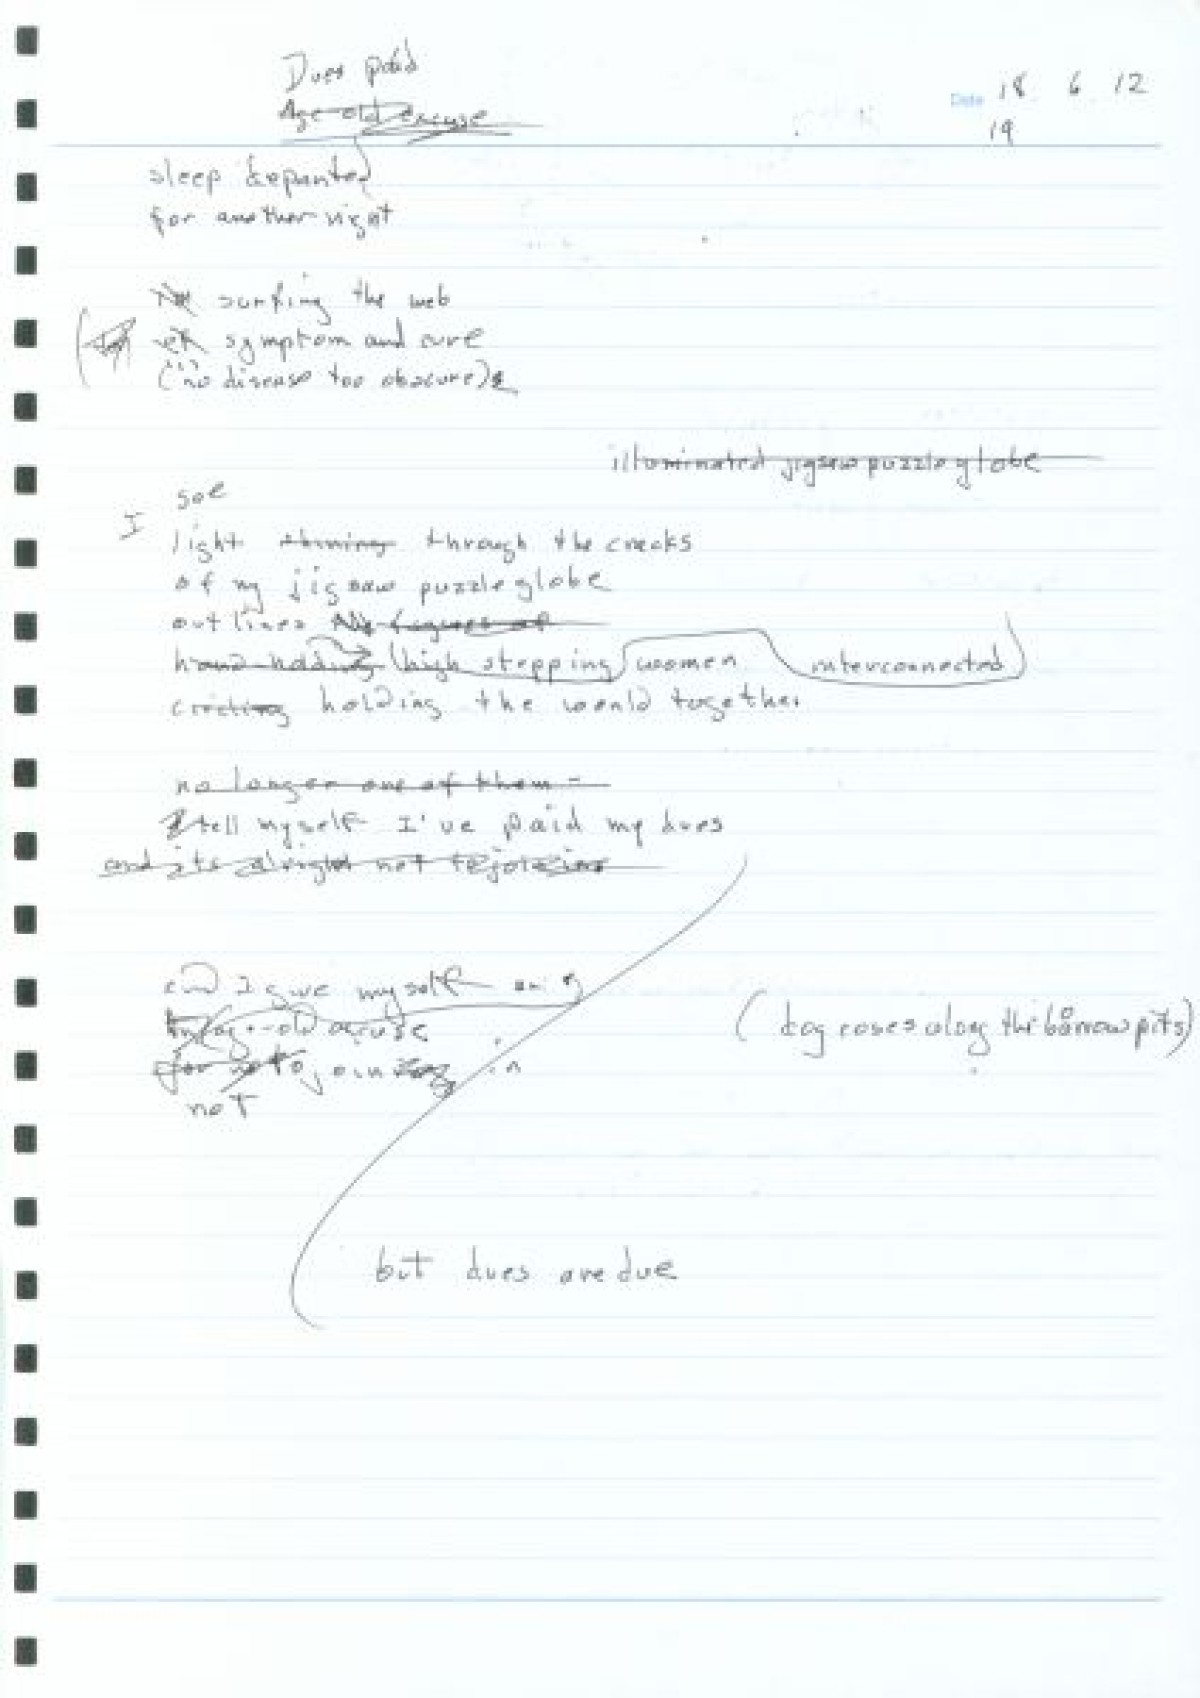 Dues paid
Age old excuse
Date 18 6 12
19
sleep departed
for another night
surfing the web
symptom and cure
(no disease too obscure)
illuminated jigsaw puzzle globe
see
I
light shining through the cracks
of my jigsaw puzzle globe
outlines figures of
hand holding (high stepping) women interconnected
circling holding the world together
no longer one of them -
I tell myself I've paid my dues
and its alright not to join in
and I give myself
age-old excuse
for not to joining in
not
(dog roses along the borrow pits)
but dues are due